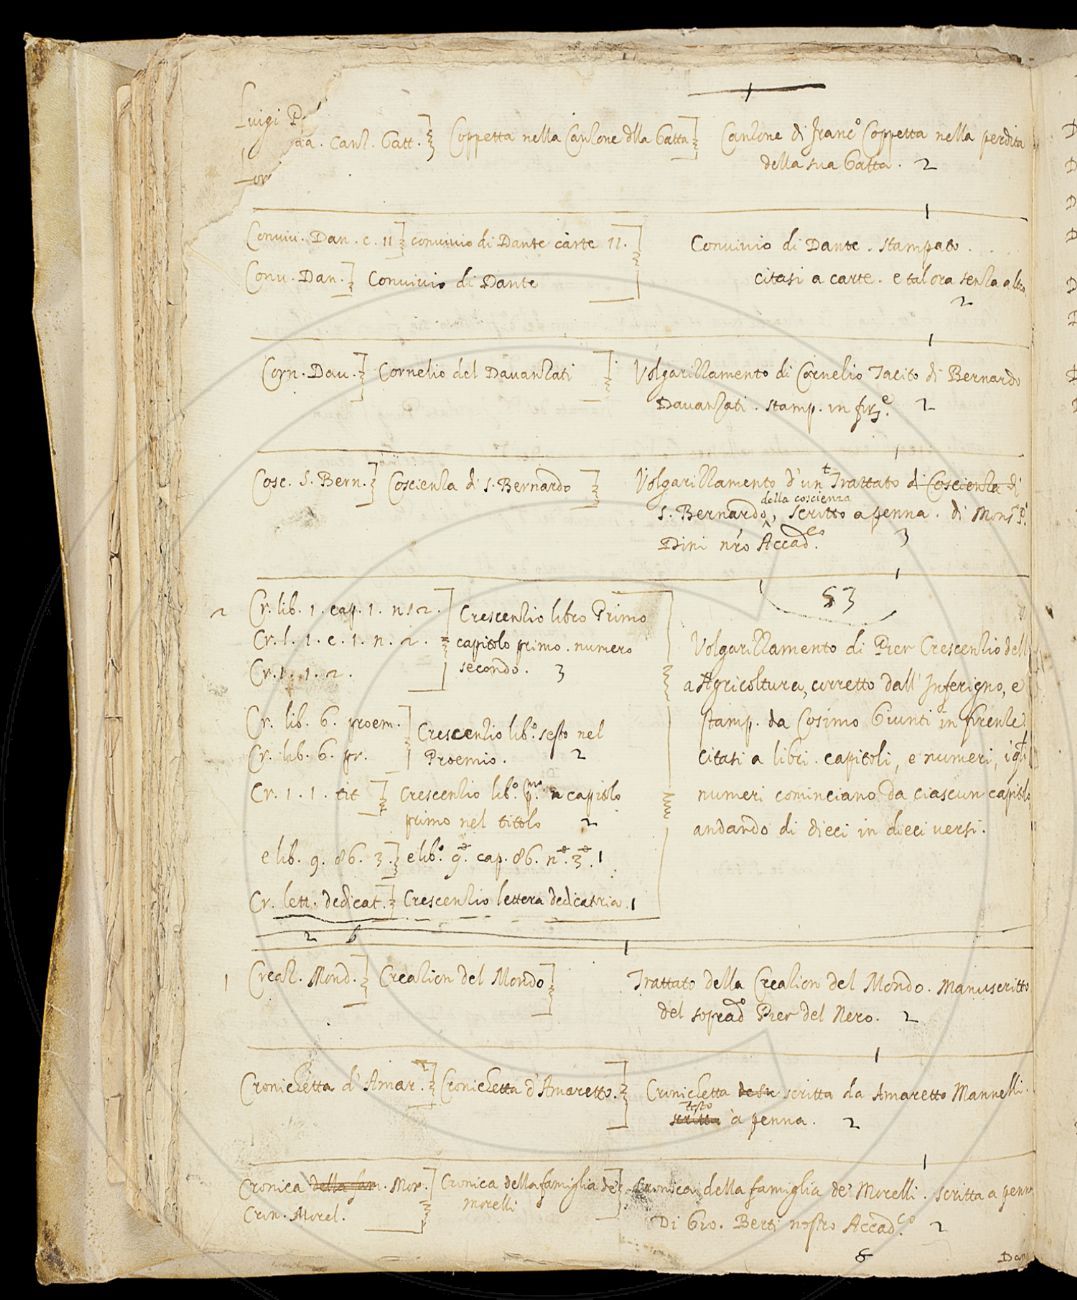 Luigi P
Canz. Gatt. Coppetta nella Canzone dlla Gatta Canzone di Franc.o Coppetta nella perdita
della sua Gatta. 2
1
Conviv. Dan. c. 11 convivio di Dante carte 11. Convivio di Dante. stampato.
Conv. Dan. Convivio di Dante citasi a carte. e talora senza altro
2
1
Corn. Dav. Cornelio del Davanzati Volgarizzamento di Cornelio Tacito di Bernardo
Davanzati. stamp. in fir.e 2
1
Cosc. S. Bern. Coscienza di S. Bernardo Volgarizzamento d'un Trattato di Coscienza di
della coscienza
S. Bernardo, scritto a penna. di Mons.r P.
Dini nr̃o Accad.co 3
1
53
2 Cr. lib. 1. cap. 1. n. 2. Crescenzio libro Primo
Cr. l. 1. c. 1. n. 2. capitolo primo. numero
Cr. 1. 1. 2. secondo. 3
Volgarizzamento di Pier Crescenzio dell
a Agricoltura, corretto dall'Inferigno, e
Cr. lib. 6. proem. Crescenzio lib.o sesto nel
Cr. lib. 6. pr. Proemio. 2
stamp. da Cosimo Giunti in firenze
citasi a libri. capitoli, e numeri, i q.li
Cr. 1. 1. tit Crescenzio lib.o p.mo a capitolo
primo nel titolo 2
numeri cominciano da ciascun capitolo
andando di dieci in dieci versi.
e lib. 9. 86. 3. e lib.o 9.o cap. 86. n.o 3.o 1
Cr. lett. dedicat. Crescenzio lettera dedicatoria. 1
2 6
1
1 Creaz. Mond. Creazion del Mondo Trattato della Creazion del Mondo. Manuscritto
del soprad.o Pier del Nero. 2
1
Cronichetta d'Amar. 2 Cronichetta d'Amaretto. Cronichetta scritta da Amaretto Mannelli.
testo
scritta à penna. 2
1
Cronica della fam. Mor. Cronica della famiglia de' Cronica della famiglia de' Morelli. scritta a penn
Cron. Morel. Morelli
Di Gio. Berti nostro Accad.co 2
8
Dan